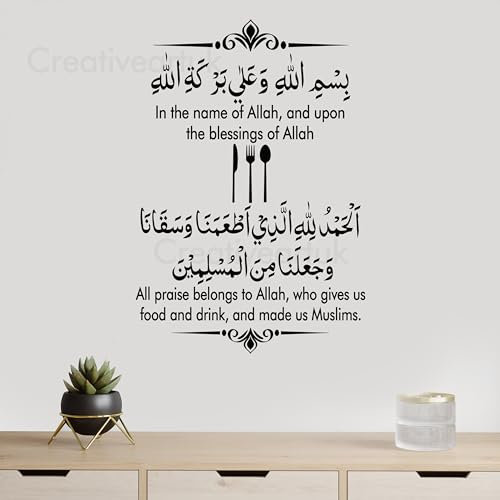 Creativedeuk
بِسْمِ اللهِ وَعَلٰي بَرَكَةِ اللهِ
In the name of Allah, and upon
the blessings of Allah
اَلْحَمْدُ لِلهِ الَّذِيْ اَطْعَمَنَا وَسَقَانَا
وَجَعَلَنَا مِنَ الْمُسْلِمِيْنَ
All praise belongs to Allah, who gives us
food and drink, and made us Muslims.